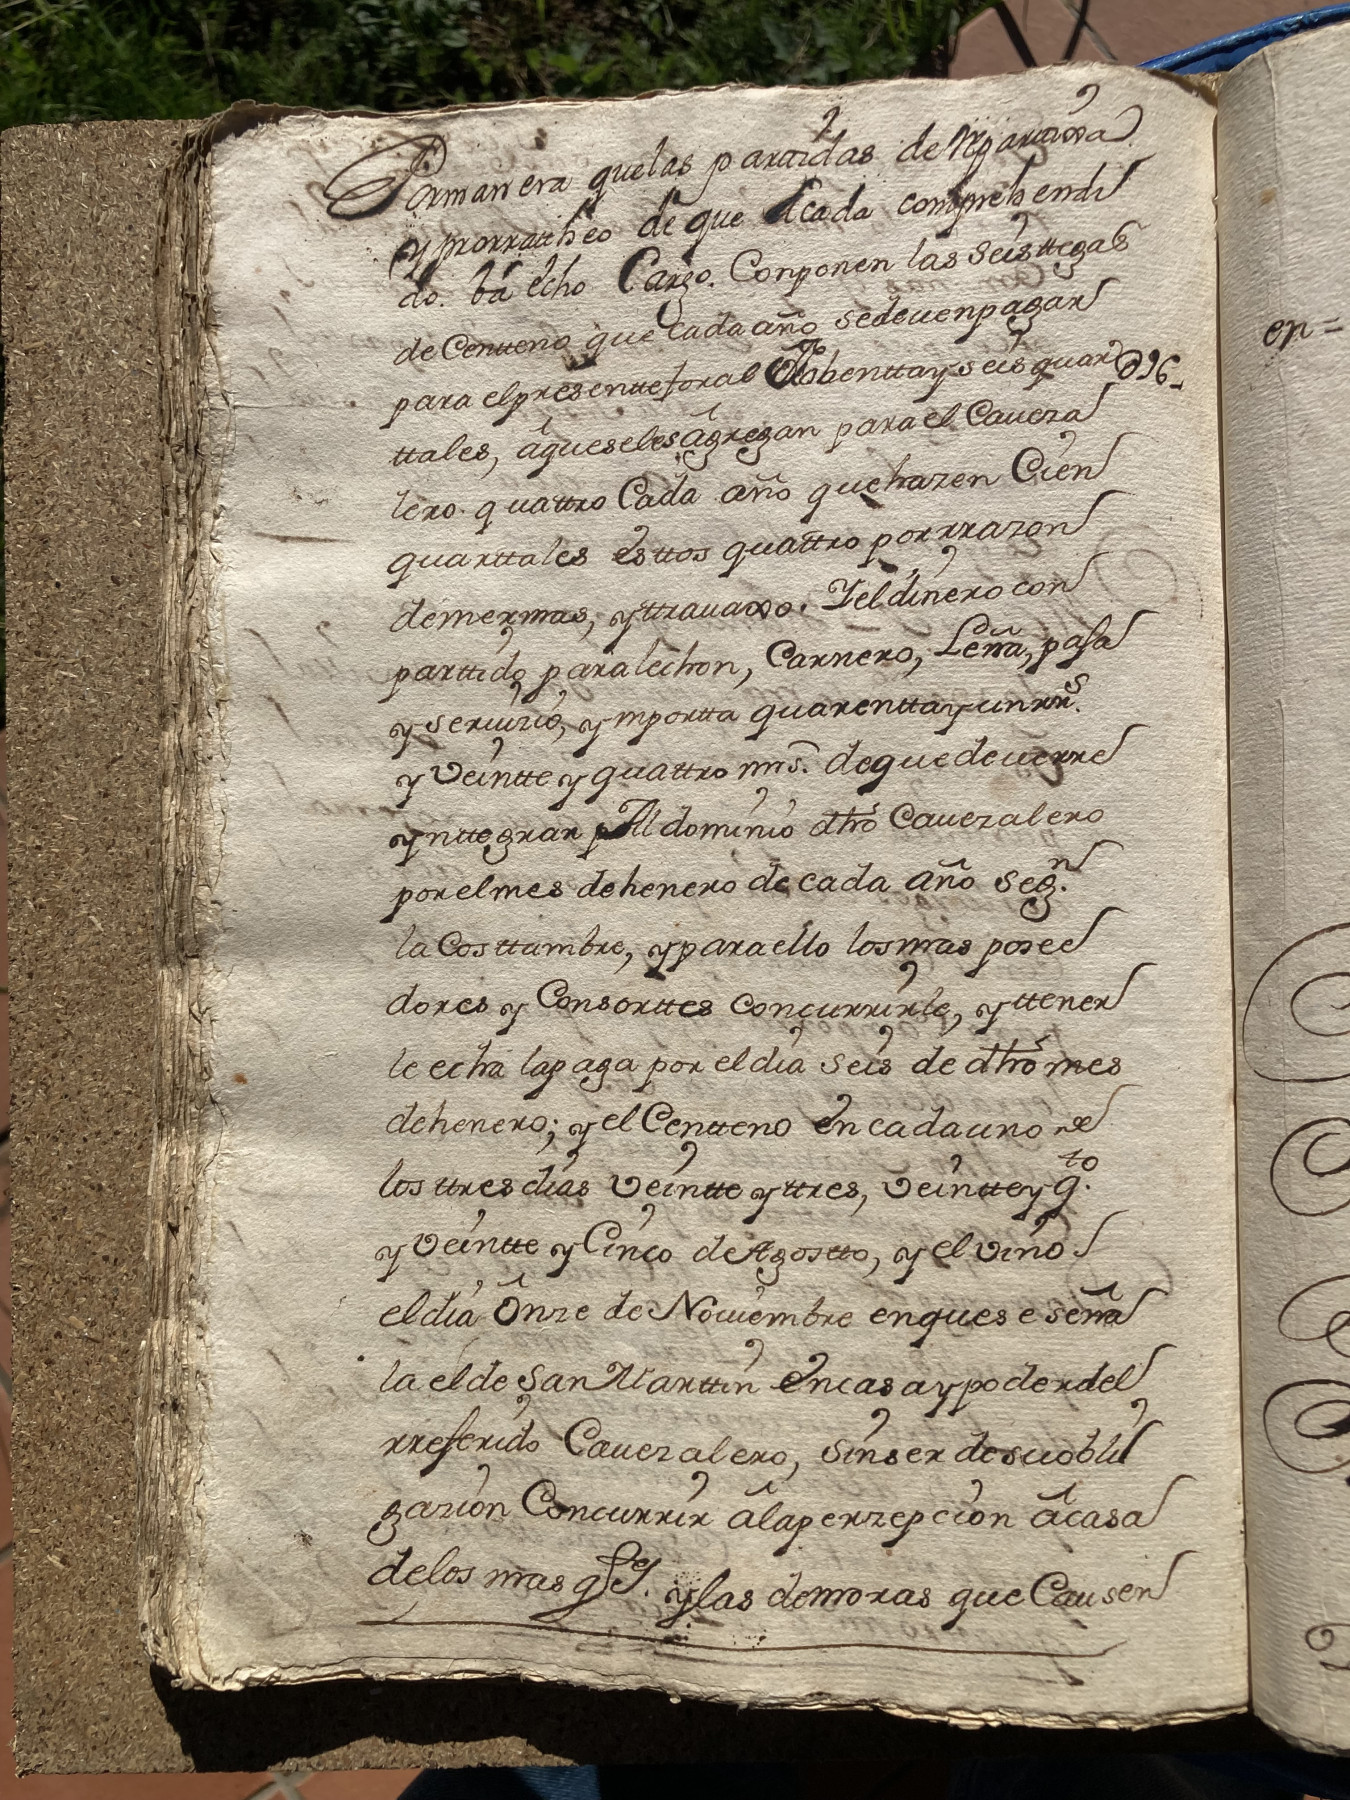 Pormanera quelas parttidas de Mgarattiva
y prorratheo de que acada comprehendi
do. ba echo Cargo. Conponen las seis ttegas
de Centteno que cada año sedeuenpagar
para elpresenttefforal Nobenttay seis quar 096_
ttales, âqueseles âgregan para el Caueza
lero. quattro Cada año quehazen Cien
quarttales êsttos quattro porrrazon
demermas, yttrauaxo. Yeldinero con
parttido paralechon, Carnero, Leña, pasa
y seruizio, ymportta quarenttayunrrs.
y Veintte y quattro mrs. dequedeuerre
ynttegrar Al dominio dhô Cauezalero
porelmes dehenero de cada año segn.
la Costtumbre, yparaello losmas posee
dores y Consorttes concurrirle, yttener
le echa lapaga por eldia seis de dhô mes
dehenero; y el Centteno en cadauno de
los ttres dias Veintte yttres, Veinttey qto.
y Veintte y Cinco de Agostto, y el vino
eldia ônze de Nouiembre enquese seña
la elde San Marttin ên casa y poderdel
rreferido Cauezalero, sinser desuobli
gazion Concurrir âlaperzepcion âcasa
delos mas ylas demoras que Causen
en=